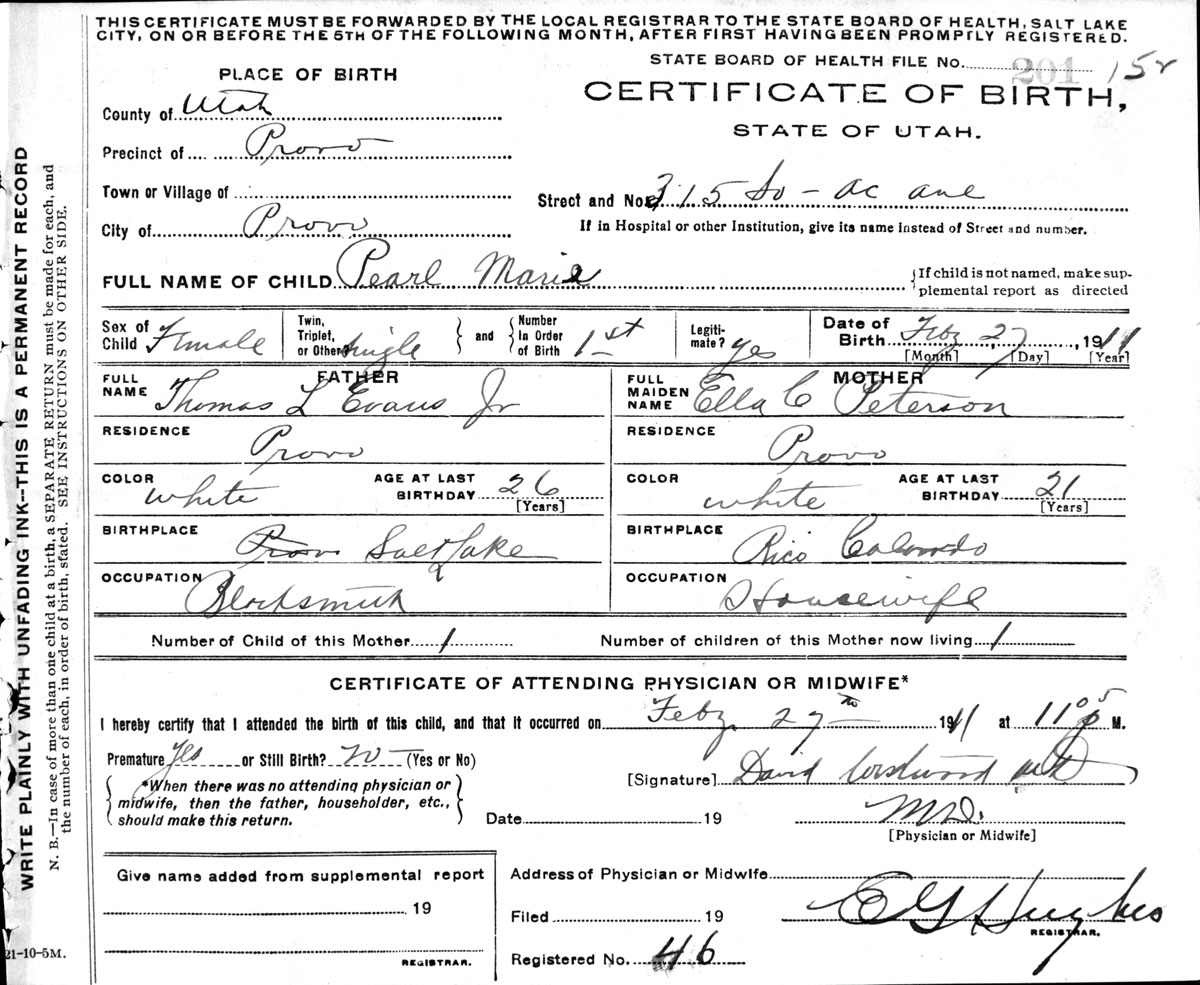 THIS CERTIFICATE MUST BE FORWARDED BY THE LOCAL REGISTRAR TO THE STATE BOARD OF HEALTH, SALT LAKE
CITY, ON OR BEFORE THE 5TH OF THE FOLLOWING MONTH, AFTER FIRST HAVING BEEN PROMPTLY REGISTERED.
STATE BOARD OF HEALTH FILE No. 201
PLACE OF BIRTH
CERTIFICATE OF BIRTH,
STATE OF UTAH.
County of Utah
Precinct of Provo
Town or Village of
Street and No. 315 So - ac ave
City of Provo
If in Hospital or other Institution, give its name instead of Street and number.
FULL NAME OF CHILD Pearl Marie
{If child is not named, make sup-
plemental report as directed
Sex of Child Female
Twin, Triplet, or Other? Single
and
Number In Order of Birth 1st
Legiti-mate? Yes
Date of Birth Feby 27, 1911
[Month] [Day] [Year]
FATHER
FULL NAME Thomas L Evans Jr
MOTHER
FULL MAIDEN NAME Ella C Peterson
RESIDENCE Provo
RESIDENCE Provo
COLOR white
AGE AT LAST BIRTHDAY 26
[Years]
COLOR white
AGE AT LAST BIRTHDAY 21
[Years]
BIRTHPLACE Provo Salt Lake
BIRTHPLACE Rico Colorado
OCCUPATION Blacksmith
OCCUPATION Housewife
Number of Child of this Mother 1
Number of children of this Mother now living 1
CERTIFICATE OF ATTENDING PHYSICIAN OR MIDWIFE*
I hereby certify that I attended the birth of this child, and that it occurred on Feby 27th 1911 at 11 05 P M.
Premature Yes or Still Birth? No (Yes or No)
[Signature] David Westwood
*When there was no attending physician or
midwife, then the father, householder, etc.,
should make this return.
Date 19
M.D.
[Physician or Midwife]
Give name added from supplemental report
19
REGISTRAR.
Address of Physician or Midwife
Filed 19
E G Hughes
REGISTRAR.
Registered No. 46
21-10-5M.
WRITE PLAINLY WITH UNFADING INK--THIS IS A PERMANENT RECORD
N. B.—In case of more than one child at a birth, a SEPARATE RETURN must be made for each, and
the number of each, in order of birth, stated. SEE INSTRUCTIONS ON OTHER SIDE.